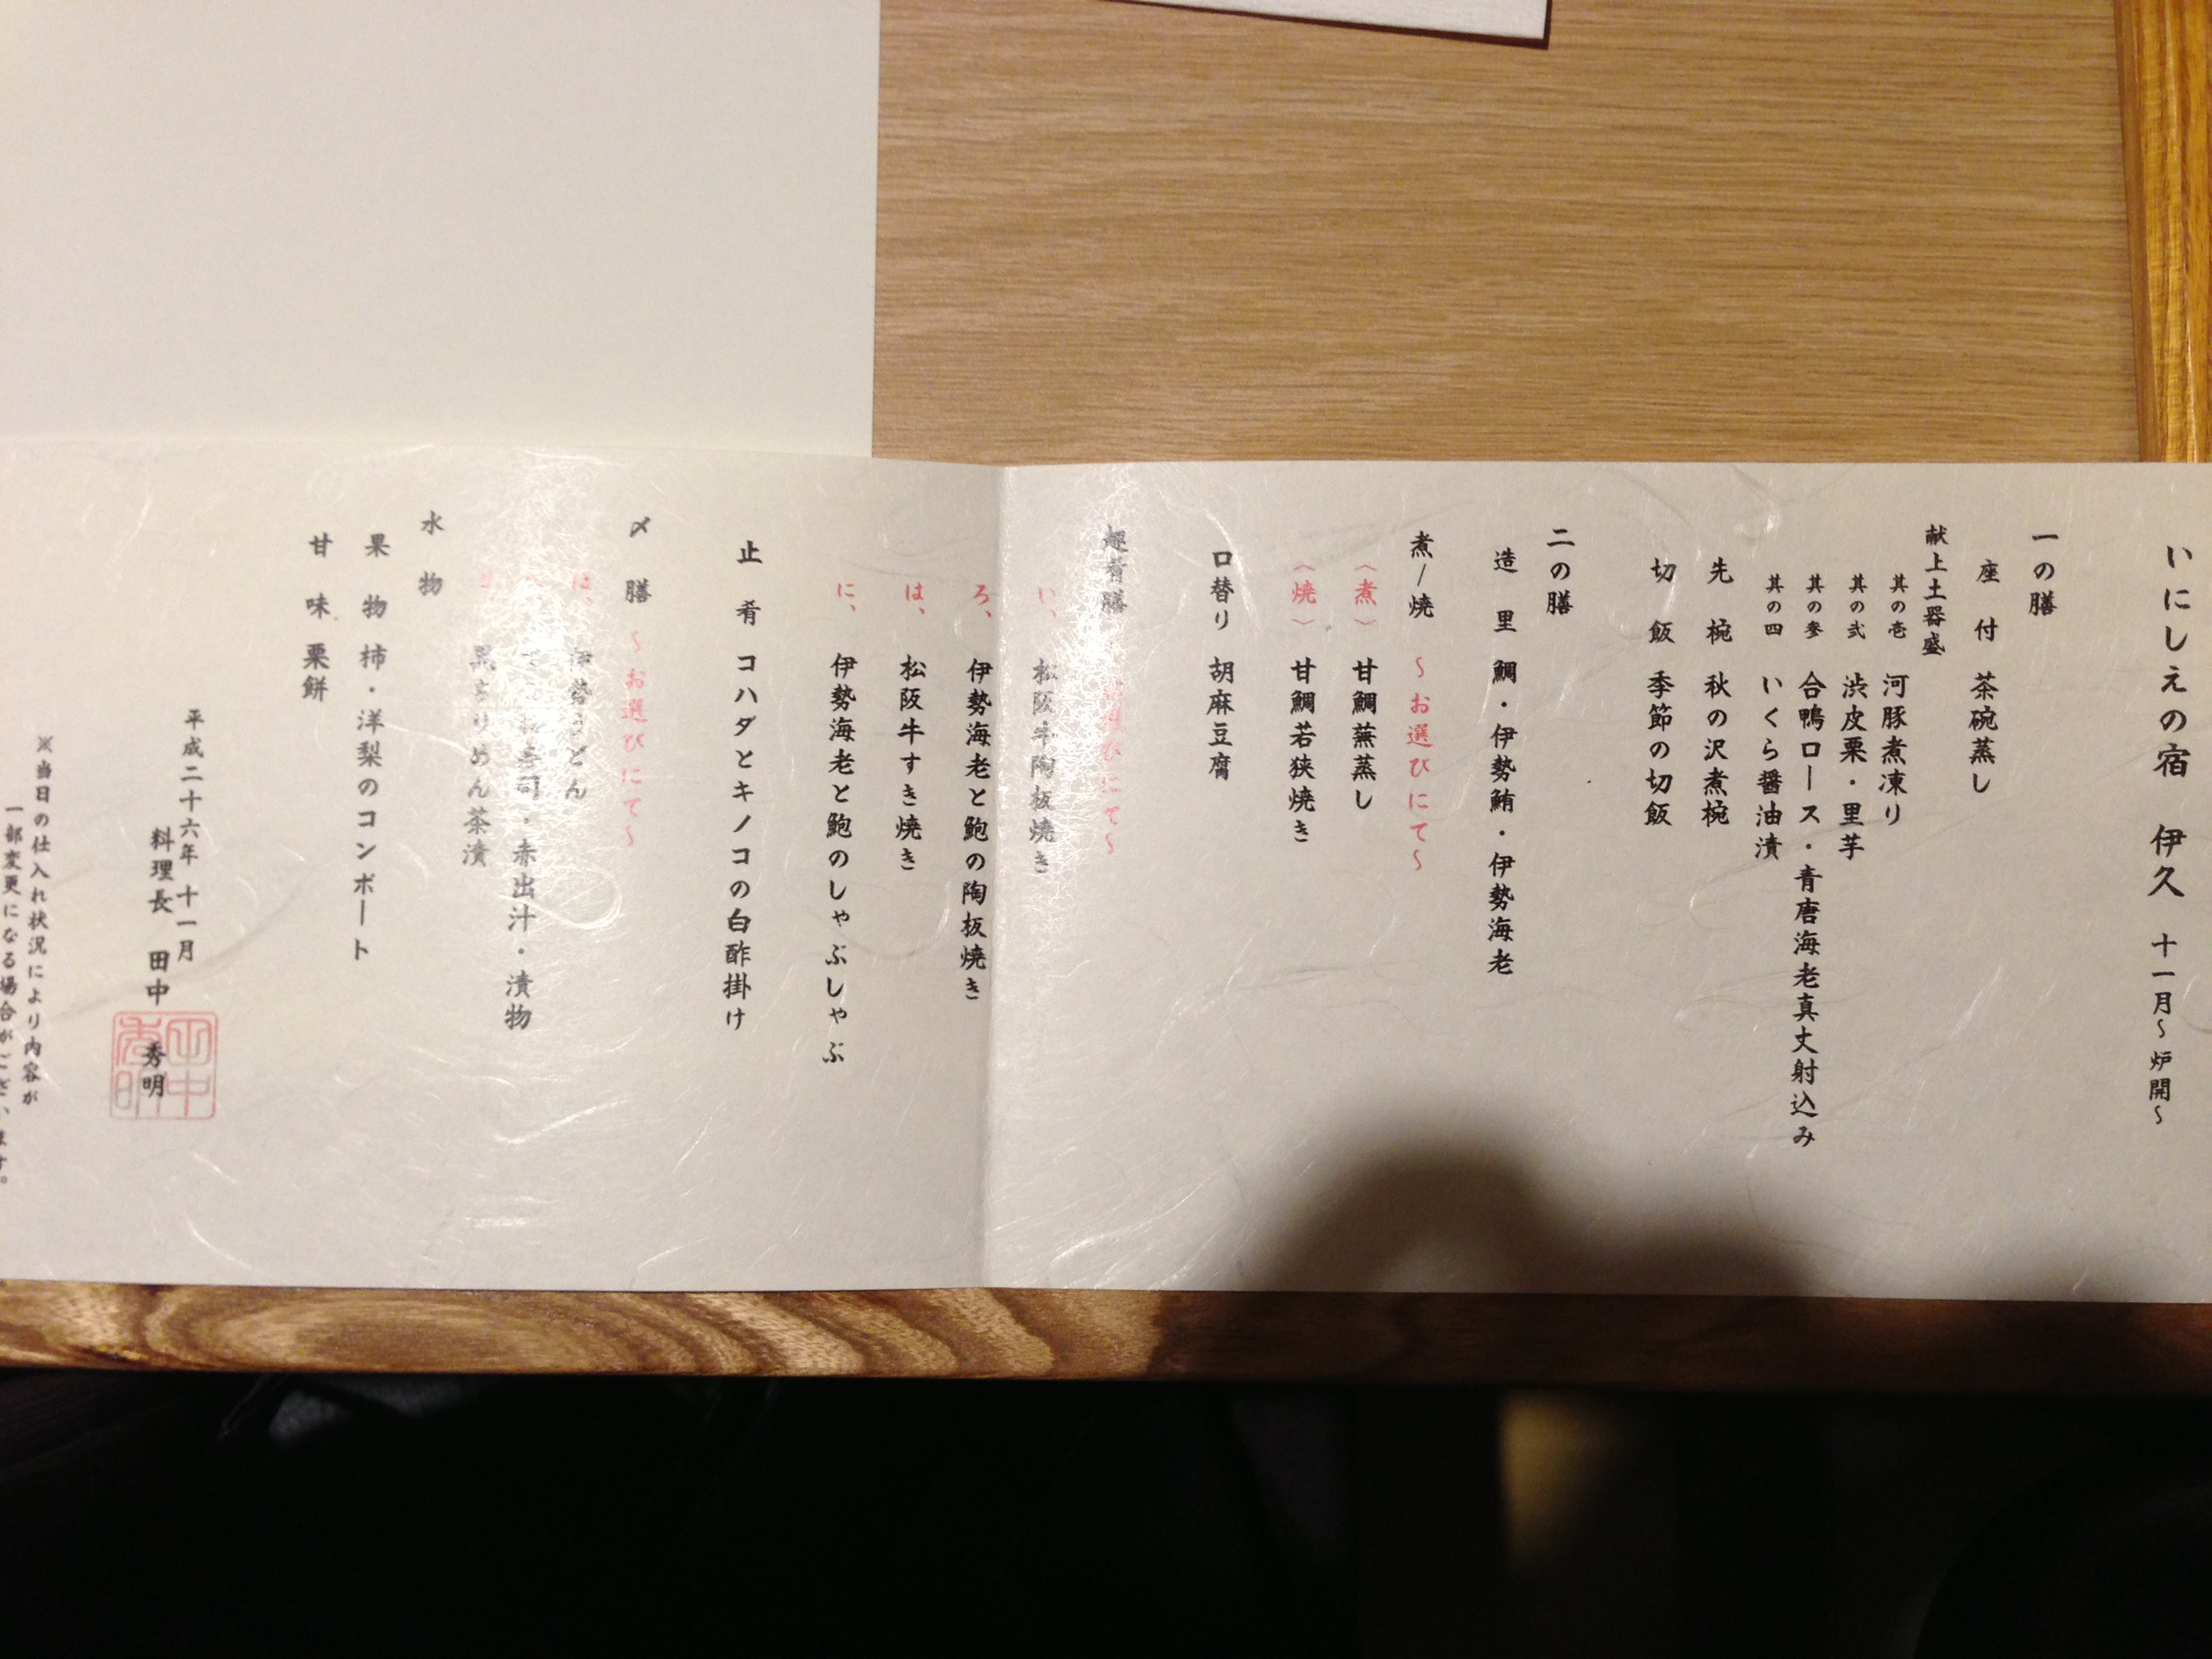 いにしえの宿 伊久 十一月~炉開~
一の膳
座付 茶碗蒸し
献上土器盛
其の壱 河豚煮凍り
其の弐 渋皮栗・里芋
其の参 合鴨ロース・青唐海老真丈射込み
其の四 いくら醤油漬
先椀 秋の沢煮椀
切飯 季節の切飯
二の膳
造里 鯛・伊勢鮪・伊勢海老
煮/焼 ~お選びにて~
〈煮〉 甘鯛蕪蒸し
〈焼〉 甘鯛若狭焼き
口替り 胡麻豆腐
肴膳 お選びにて~
い、 松阪牛陶板焼き
ろ、 伊勢海老と鮑の陶板焼き
は、 松阪牛すき焼き
に、 伊勢海老と鮑のしゃぶしゃぶ
止肴 コハダとキノコの白酢掛け
〆膳 ~お選びにて~
は、 伊勢うどん
寿司・赤出汁・漬物
ちりめん茶漬
水物
果物 柿・洋梨のコンポート
甘味 栗餅
平成二十六年 十一月
料理長 田中 秀明
田中秀明
※当日の仕入れ状況により内容が
一部変更になる場合がございます。